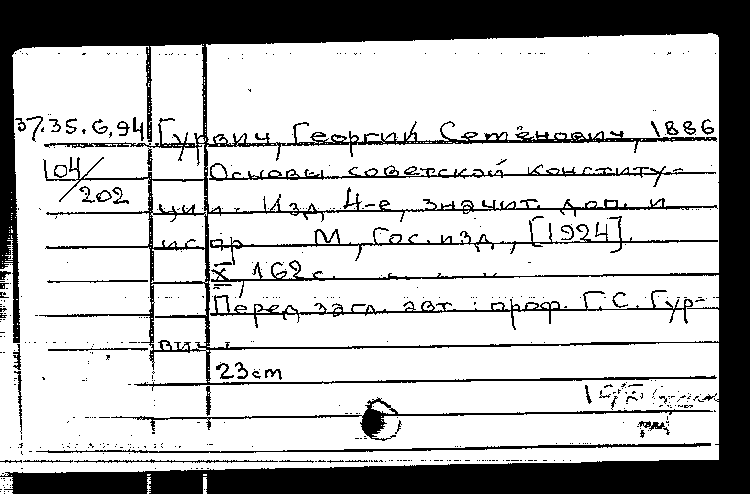 37.35.6,94 Гурвич, Георгий Семёнович, 1886
104/202 Основы советской конститу-
ции. Изд. 4-е, значит. доп. и
испр. М., Гос. изд., [1924].
X, 162 с.
Перед загл. авт.: проф. Г.С. Гур-
вич.
23 cm